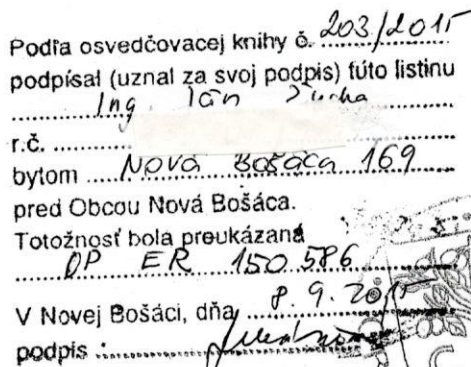 Podľa osvedčovacej knihy č. 203/2015
podpísal (uznal za svoj podpis) túto listinu
Ing. Ján
r.č.
bytom Nová Bošáca 169
pred Obcou Nová Bošáca.
Totožnosť bola preukázaná
OP ER 150 586
V Novej Bošáci, dňa 8. 9. 2015
podpis